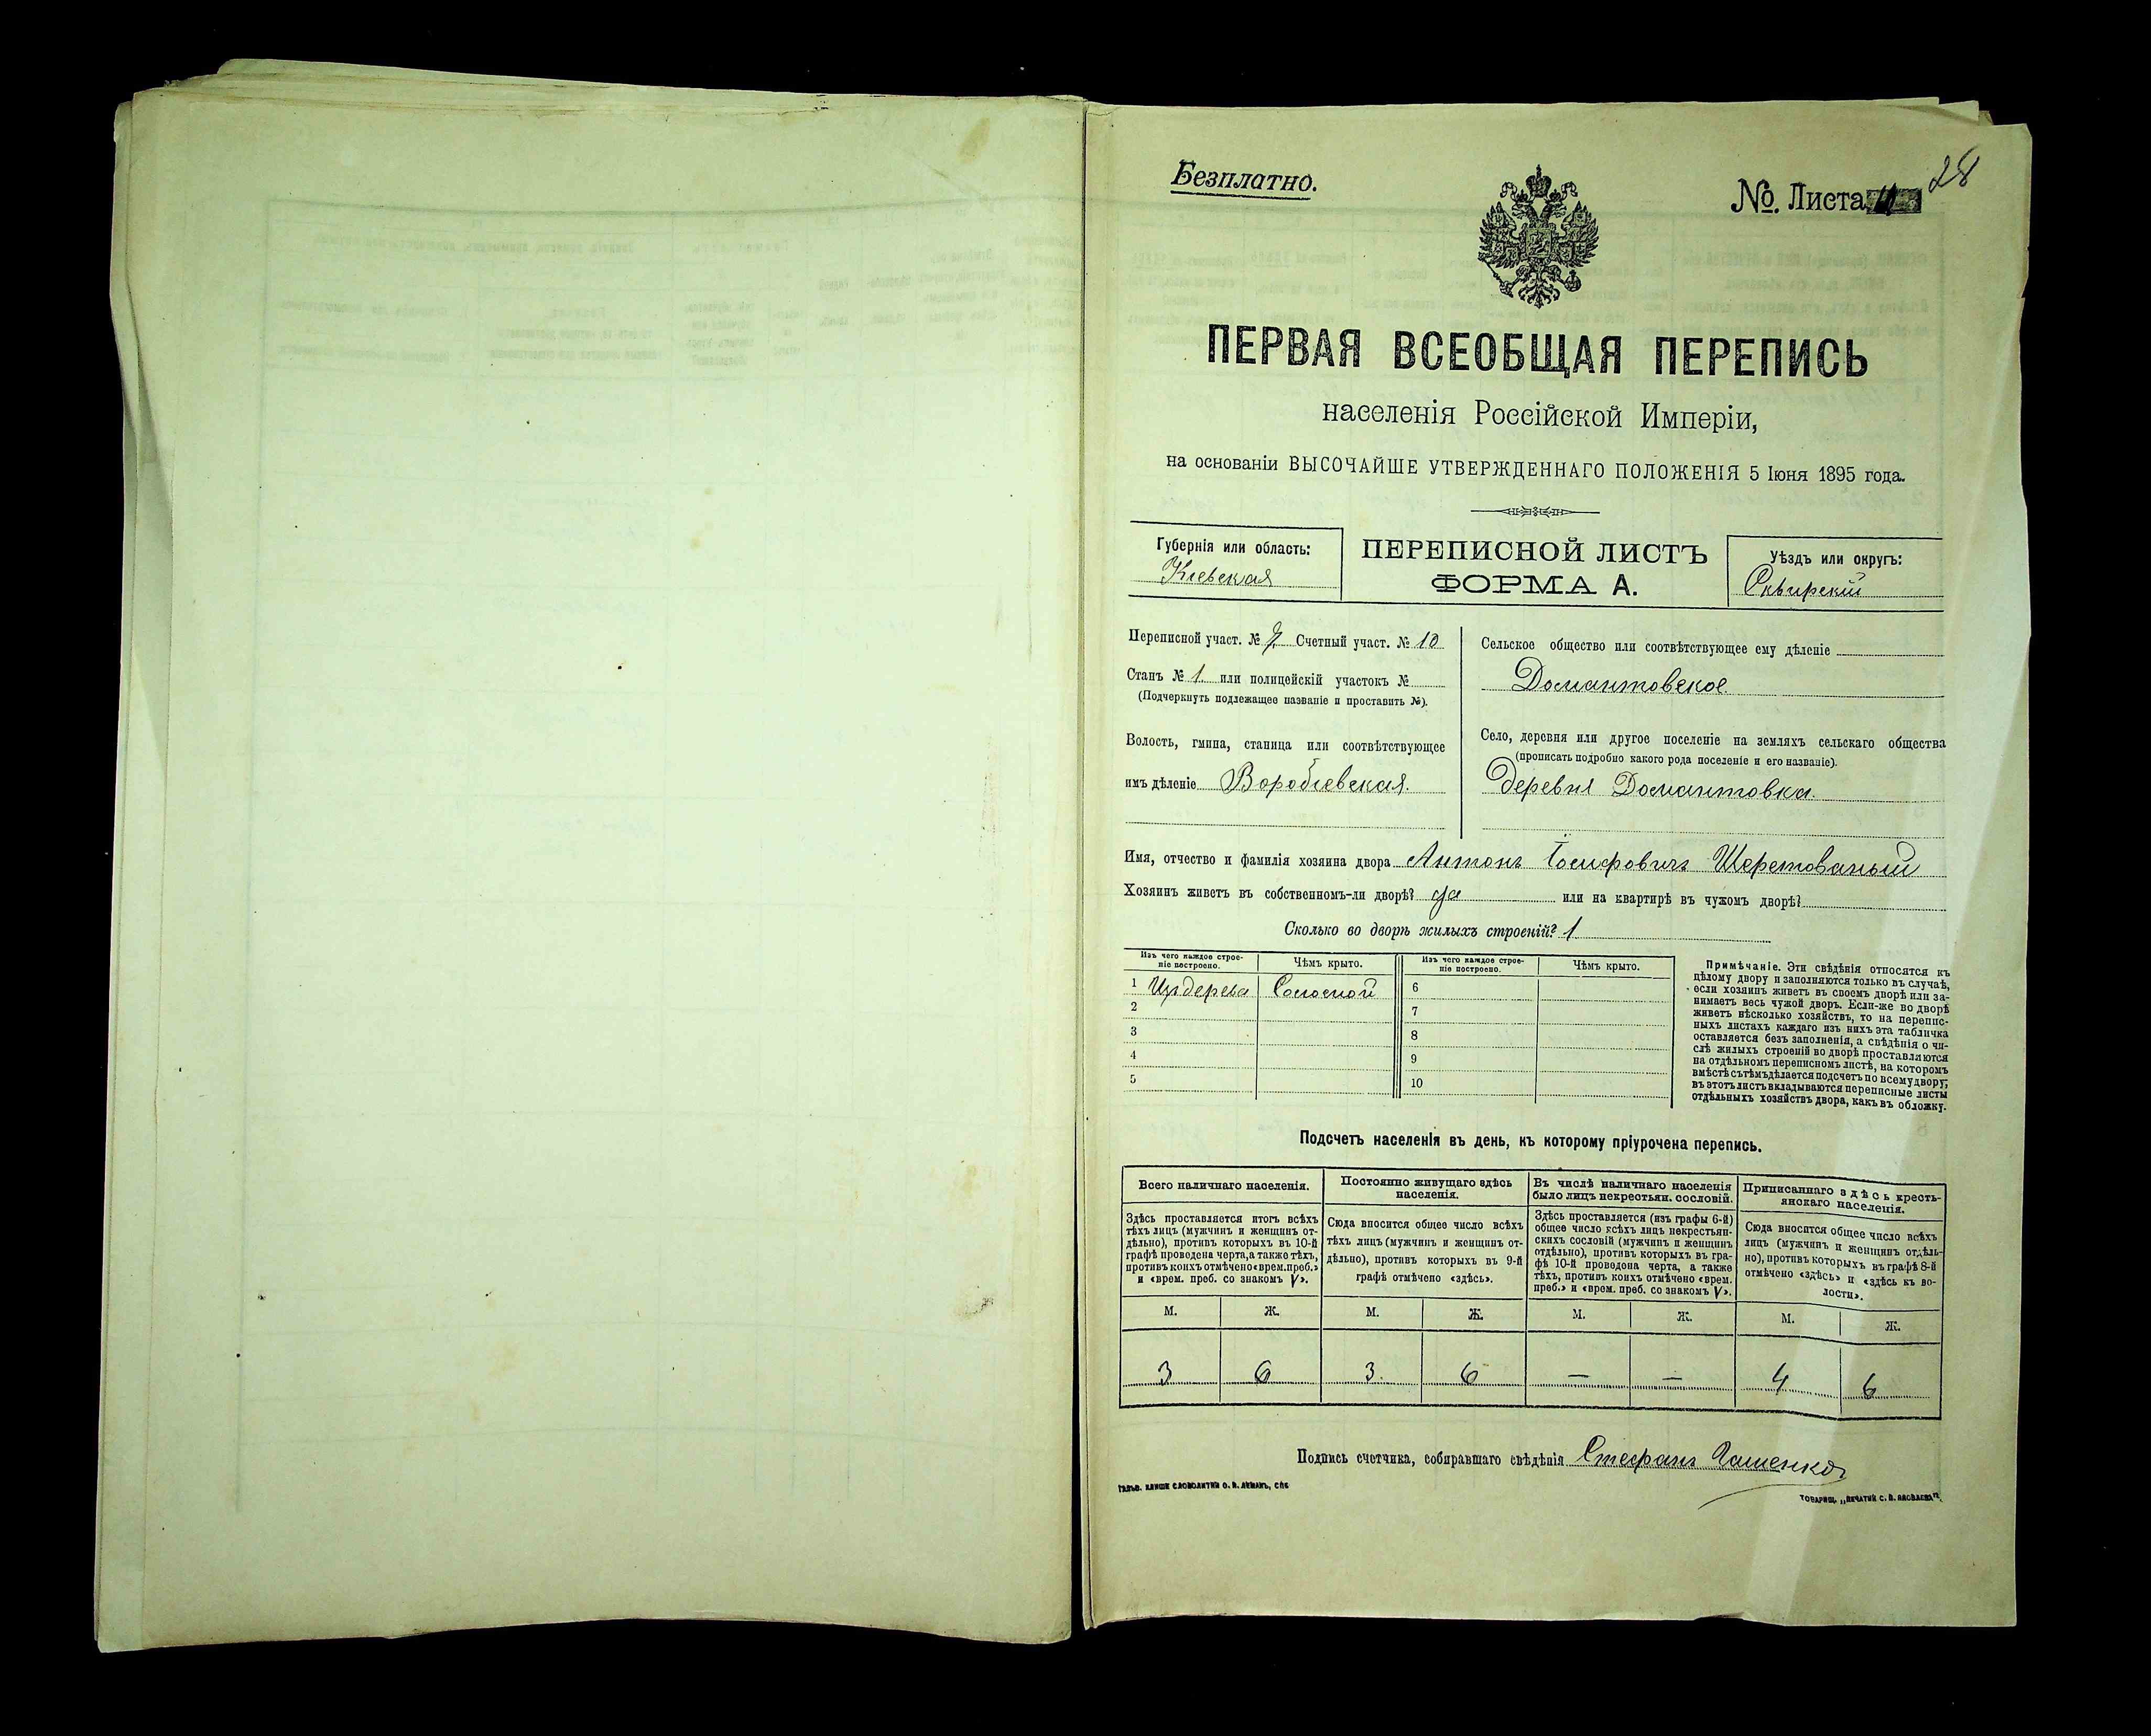 Безплатно.
№. Листа 11
28
ПЕРВАЯ ВСЕОБЩАЯ ПЕРЕПИСЬ
населенія Россійской Имперіи,
на основаніи ВЫСОЧАЙШЕ УТВЕРЖДЕННАГО ПОЛОЖЕНІЯ 5 Іюня 1895 года.
Губернія или область:
Кіевская
ПЕРЕПИСНОЙ ЛИСТЪ
ФОРМА А.
Уѣздъ или округъ:
Сквирскій
Переписной участ. № 7 Счетный участ. № 10
Станъ № 1. или полицейскій участокъ №
(Подчеркнуть подлежащее названіе и проставить №).
Волость, гмина, станица или соотвѣтствующее
имъ дѣленіе Воробіевская.
Сельское общество или соотвѣтствующее ему дѣленіе
Домантовское.
Село, деревня или другое поселеніе на земляхъ сельскаго общества
(прописать подробно какого рода поселеніе и его названіе).
деревня Домантовка.
Имя, отчество и фамилія хозяина двора Антонъ Іосифовичъ Шереметованый
Хозяинъ живетъ въ собственномъ-ли дворѣ? да или на квартирѣ въ чужомъ дворѣ?
Сколько во дворѣ жилыхъ строеній? 1
Изъ чего каждое строе-
ніе построено.
Чѣмъ крыто.
Изъ чего каждое строе-
ніе построено.
Чѣмъ крыто.
1 Изъ дерева Соломой 6
2 7
3 8
4 9
5 10
Примѣчаніе. Эти свѣдѣнія относятся къ
цѣлому двору и заполняются только въ случаѣ,
если хозяинъ живетъ въ своемъ дворѣ или за-
нимаетъ весь чужой дворъ. Если-же во дворѣ
живетъ нѣсколько хозяйствъ, то на перепис-
ныхъ листахъ каждаго изъ нихъ эта табличка
оставляется безъ заполненія, а свѣдѣнія о чи-
слѣ жилыхъ строеній во дворѣ проставляются
на отдѣльномъ переписномъ листѣ, на которомъ
вмѣстѣ съ тѣмъ дѣлается подсчетъ по всему двору;
въ этотъ листъ вкладываются переписные листы
отдѣльныхъ хозяйствъ двора, какъ въ обложку.
Подсчетъ населенія въ день, къ которому пріурочена перепись.
Всего наличнаго населенія.
Здѣсь проставляется итогъ всѣхъ
тѣхъ лицъ (мужчинъ и женщинъ от-
дѣльно), противъ которыхъ въ 10-й
графѣ проведена черта, а также тѣхъ,
противъ коихъ отмѣчено «врем. преб.»
и «врем. преб. со знакомъ V».
Постоянно живущаго здѣсь
населенія.
Сюда вносится общее число всѣхъ
тѣхъ лицъ (мужчинъ и женщинъ от-
дѣльно), противъ которыхъ въ 9-й
графѣ отмѣчено «здѣсь».
Въ числѣ наличнаго населенія
было лицъ некрестьян. сословій.
Здѣсь проставляется (изъ графы 6-й)
общее число всѣхъ лицъ некрестьян-
скихъ сословій (мужчинъ и женщинъ
отдѣльно), противъ которыхъ въ гра-
фѣ 10-й проведена черта, а также
тѣхъ, противъ коихъ отмѣчено «врем.
преб.» и «врем. преб. со знакомъ V».
Приписаннаго здѣсь кресть-
янскаго населенія.
Сюда вносится общее число всѣхъ
лицъ (мужчинъ и женщинъ отдѣль-
но), противъ которыхъ въ графѣ 8-й
отмѣчено «здѣсь» и «здѣсь къ во-
лости».
М. Ж. М. Ж. М. Ж. М. Ж.
3 6 3. 6 — — 4 6
Подпись счетчика, собиравшаго свѣдѣнія Стефанъ